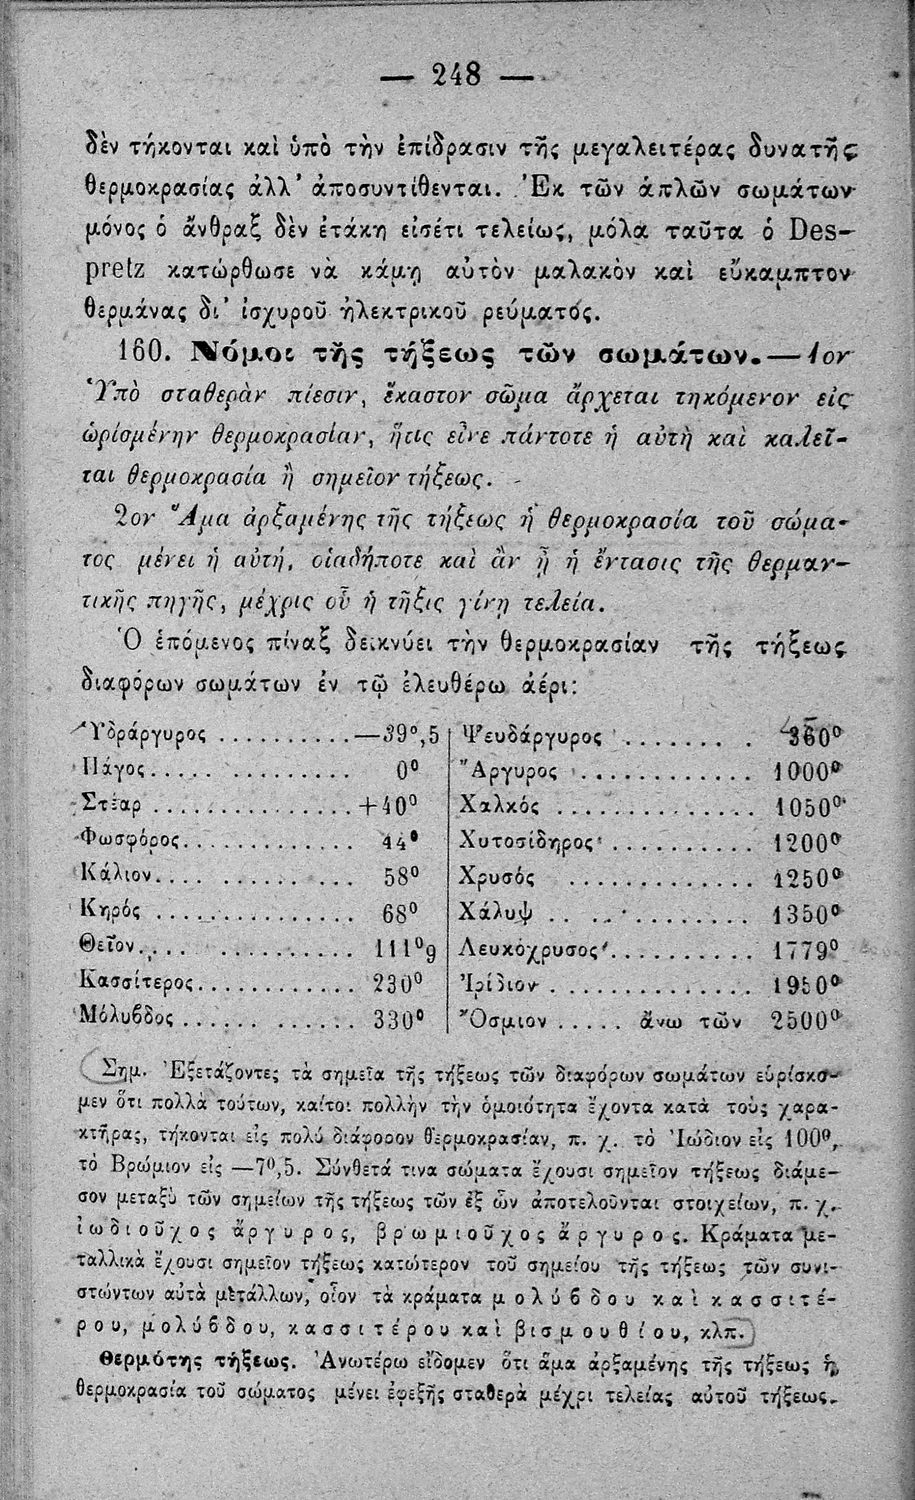 — 248 —
δὲν τήκονται καὶ ὑπὸ τὴν ἐπίδρασιν τῆς μεγαλειτέρας δυνατῆς
θερμοκρασίας ἀλλ’ ἀποσυντίθενται. Ἐκ τῶν ἁπλῶν σωμάτων
μόνος ὁ ἄνθραξ δὲν ἐτάκη εἰσέτι τελείως, μόλα ταῦτα ὁ Des-
pretz κατώρθωσε νὰ κάμῃ αὐτὸν μαλακὸν καὶ εὔκαμπτον
θερμάνας δι’ ἰσχυροῦ ἠλεκτρικοῦ ρεύματος.
160. Νόμοι τῆς τήξεως τῶν σωμάτων.—1ον
Ὑπὸ σταθερὰν πίεσιν, ἕκαστον σῶμα ἄρχεται τηκόμενον εἰς
ὡρίσμένην θερμοκρασίαν, ἥτις εἶνε πάντοτε ἡ αὐτὴ καὶ καλεῖ-
ται θερμοκρασία ἢ σημεῖον τήξεως.
2ον Ἅμα ἀρξαμένης τῆς τήξεως ἡ θερμοκρασία τοῦ σώμα-
τος μένει ἡ αὐτή, οἱαδήποτε καὶ ἂν ᾖ ἡ ἔντασις τῆς θερμαν-
τικῆς πηγῆς, μέχρις οὗ ἡ τῆξις γίνῃ τελεία.
Ὁ ἑπόμενος πίναξ δεικνύει τὴν θερμοκρασίαν τῆς τήξεως
διαφόρων σωμάτων ἐν τῷ ἐλευθέρω ἀέρι:
Ὑδράργυρος .......... —39°,5
Πάγος..... .......... 0°
Στέαρ ............... +40°
Φωσφόρος............. 44°
Κάλιον.... .......... 58°
Κηρός .... .......... 68°
Θεῖον..... .......... 111°9
Κασσίτερος........... 230°
Μόλυβδος ............ 330°
Ψευδάργυρος ........ 360°
Ἄργυρος ............ 1000°
Χαλκός ............. 1050°
Χυτοσίδηρος ........ 1200°
Χρυσός ............. 1250°
Χάλυψ .............. 1350°
Λευκόχρυσος......... 1779°
Ἰρίδιον ............ 1950°
Ὄσμιον ..... ἄνω τῶν 2500°
Σημ. Ἐξετάζοντες τὰ σημεῖα τῆς τήξεως τῶν διαφόρων σωμάτων εὑρίσκο-
μεν ὅτι πολλὰ τούτων, καίτοι πολλὴν τὴν ὁμοιότητα ἔχοντα κατὰ τοὺς χαρα-
κτῆρας, τήκονται εἰς πολύ διάφορον θερμοκρασίαν, π. χ. τὸ Ἰώδιον εἰς 100°,
τὸ Βρώμιον εἰς —7°,5. Σύνθετά τινα σώματα ἔχουσι σημεῖον τήξεως διάμε-
σον μεταξὺ τῶν σημείων τῆς τήξεως τῶν ἐξ ὧν ἀποτελοῦνται στοιχείων, π. χ.
ἰωδιοῦχος ἄργυρος, βρωμιοῦχος ἄργυρος. Κράματα με-
ταλλικὰ ἔχουσι σημεῖον τήξεως κατώτερον τοῦ σημείου τῆς τήξεως τῶν συνι-
στώντων αὐτὰ μετάλλων, οἷον τὰ κράματα μολύβδου καὶ κασσιτέ-
ρου, μολύβδου, κασσιτέρου καὶ βισμουθίου, κλπ.
Θερμότης τήξεως. Ἀνωτέρω εἴδομεν ὅτι ἅμα ἀρξαμένης τῆς τήξεως ἡ
θερμοκρασία τοῦ σώματος μένει ἐφεξῆς σταθερὰ μέχρι τελείας αὐτοῦ τήξεως.